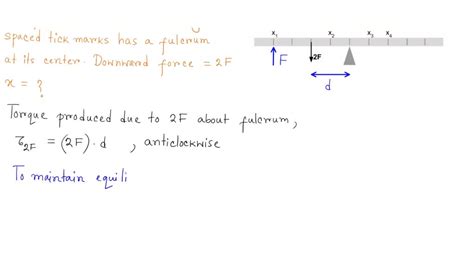 spaced tick marks has a fulcrum
at its center. Downward force = 2F
x = ?
x₁ x₂ x₃ x₄
F
2F
d
Torque produced due to 2F about fulcrum,
τ₂F = (2F).d , anticlockwise
To maintain equili